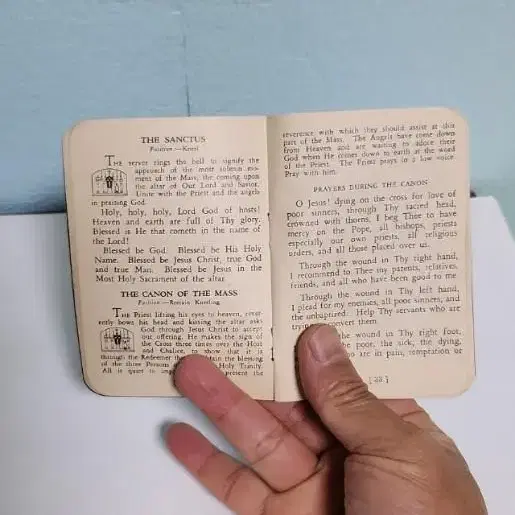 THE SANCTUS
Position—Kneel
THE server rings the bell to signify the
approach of the most solemn mo-
ment of the Mass, the coming upon
the altar of Our Lord and Savior.
Unite with the Priest and the angels
in praising God.
Holy, holy, holy, Lord God of hosts!
Heaven and earth are full of Thy glory.
Blessed is He that cometh in the name of
the Lord!
Blessed be God. Blessed be His Holy
Name. Blessed be Jesus Christ, true God
and true Man. Blessed be Jesus in the
Most Holy Sacrament of the altar.
THE CANON OF THE MASS
Position—Remain Kneeling
THE Priest lifting his eyes to heaven, rever-
ently bows his head and kissing the altar asks
God through Jesus Christ to accept
our offering. He makes the sign of
the Cross three times over the Host
and Chalice, to show that it is
through the Redeemer that obtain the blessing
of the three Persons Holy Trinity.
All is quiet to present the
reverence with which they should assist at this
part of the Mass. The Angels have come down
from Heaven and are waiting to adore their
God when He comes down to earth at the word
of the Priest. The Priest prays in a low voice.
Pray with him.
PRAYERS DURING THE CANON
O Jesus! dying on the cross for love of
poor sinners, through Thy sacred head,
crowned with thorns, I beg Thee to have
mercy on the Pope, all bishops, priests
especially our own priests, all religious
orders, and all those placed over us.
Through the wound in Thy right hand,
I recommend to Thee my parents, relatives,
friends, and all who have been good to me.
Through the wound in Thy left hand,
I plead for my enemies, all poor sinners, and
the unbaptized. Help Thy servants who are
trying to convert them.
the wound in Thy right foot,
the poor, the sick, the dying,
who are in pain, temptation or